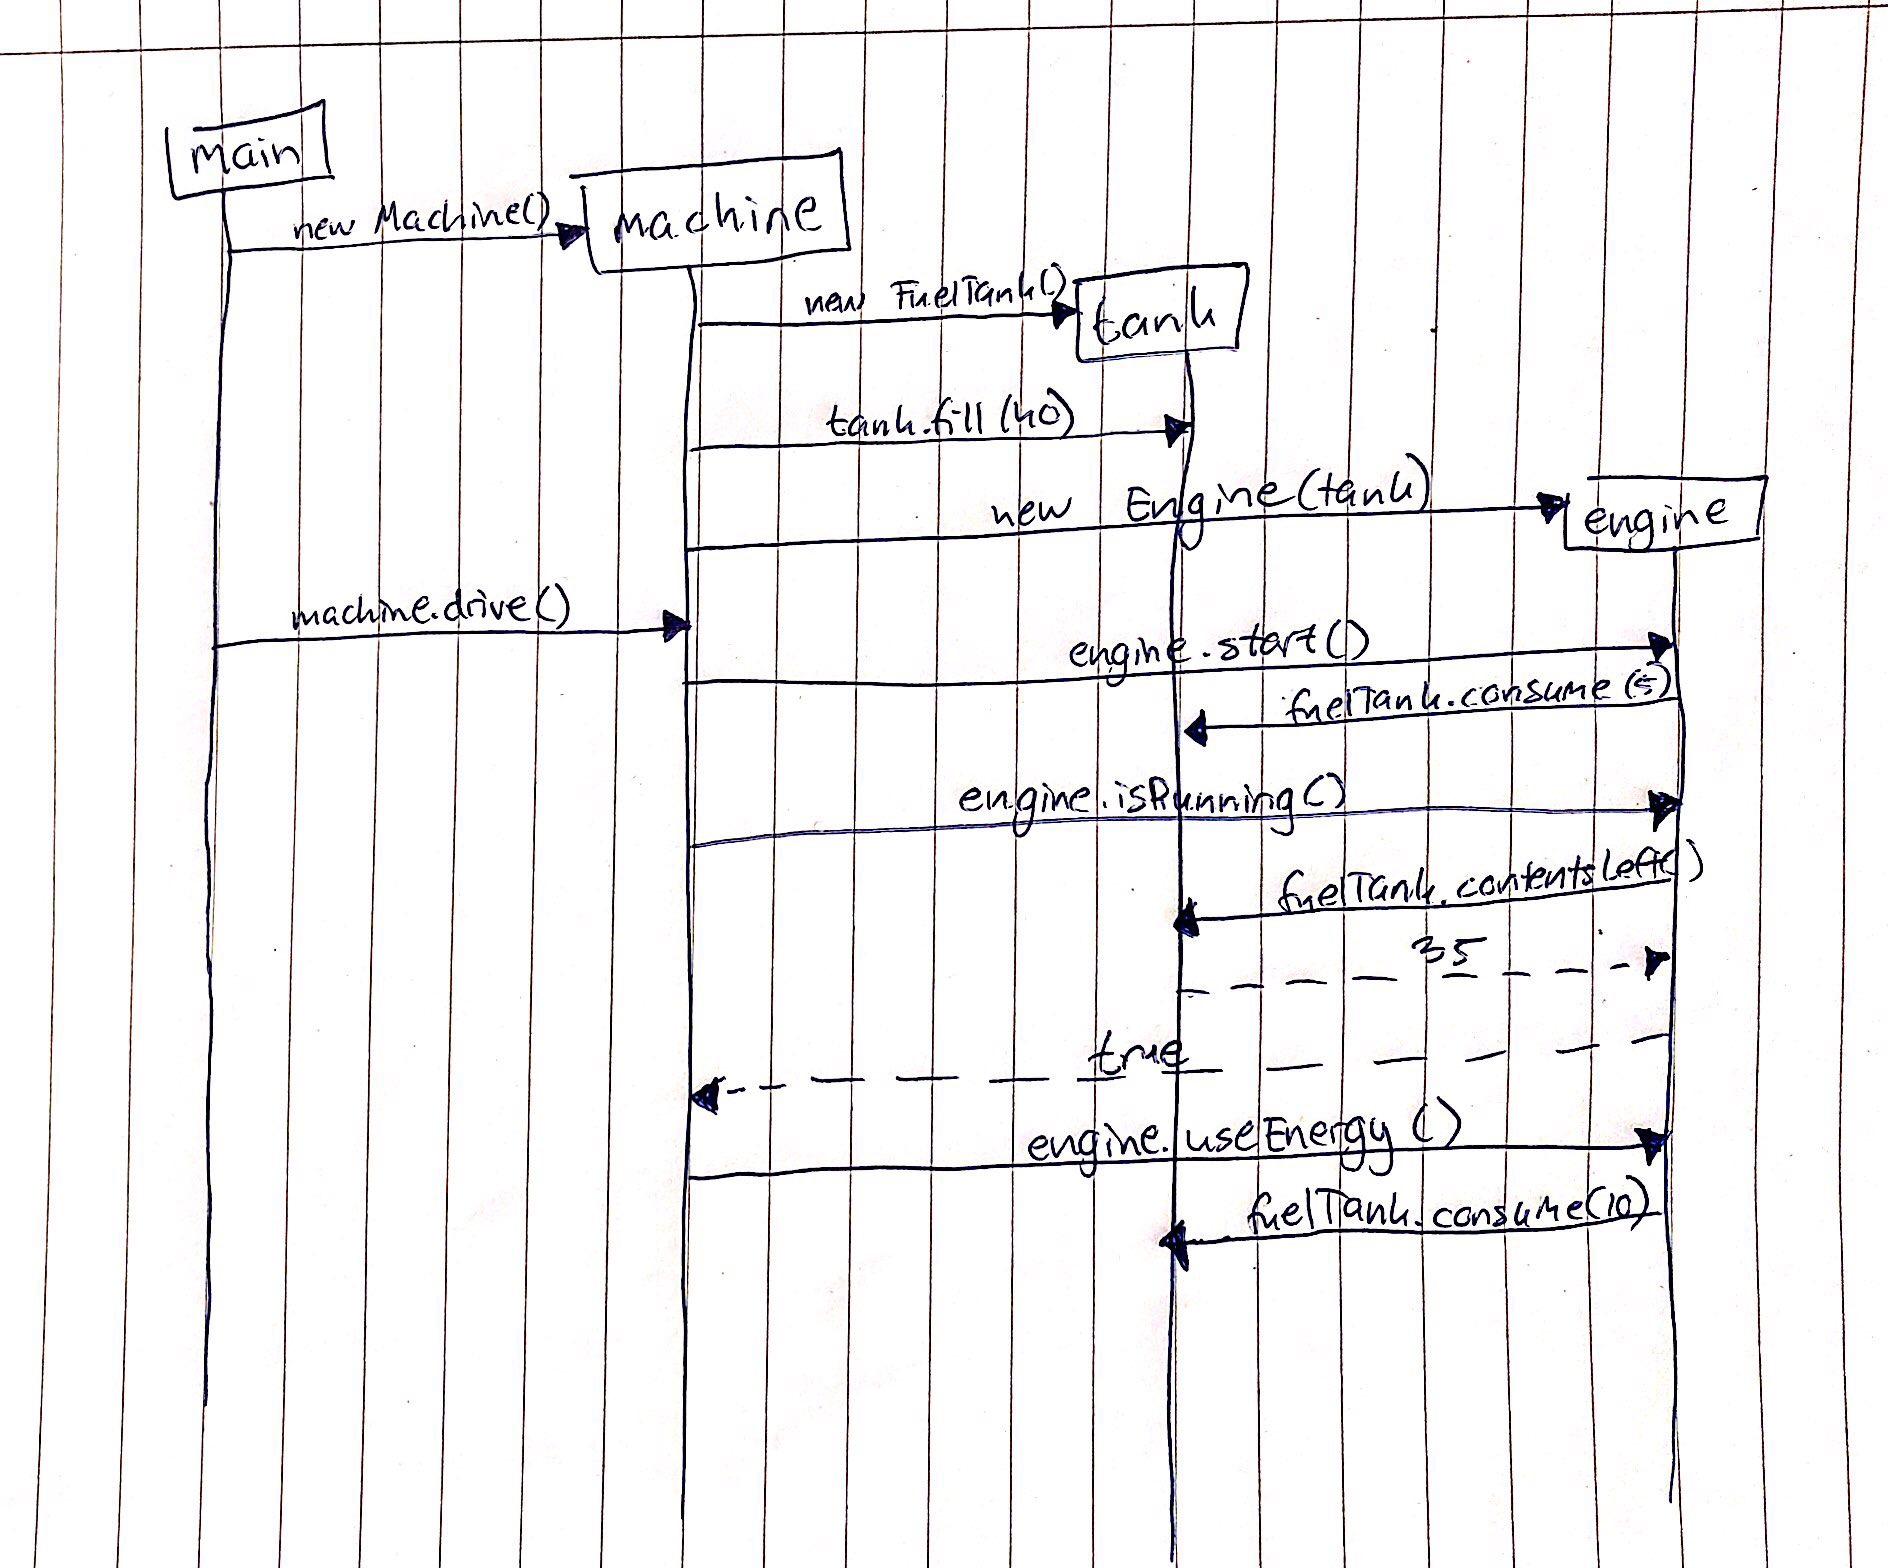 main
new Machine()
machine
new FuelTank()
tank
tank.fill (40)
new Engine(tank)
engine
machine.drive()
engine.start()
fuelTank.consume (5)
engine.isRunning()
fuelTank.contentsLeft()
35
true
engine.useEnergy ()
fuelTank.consume(10)